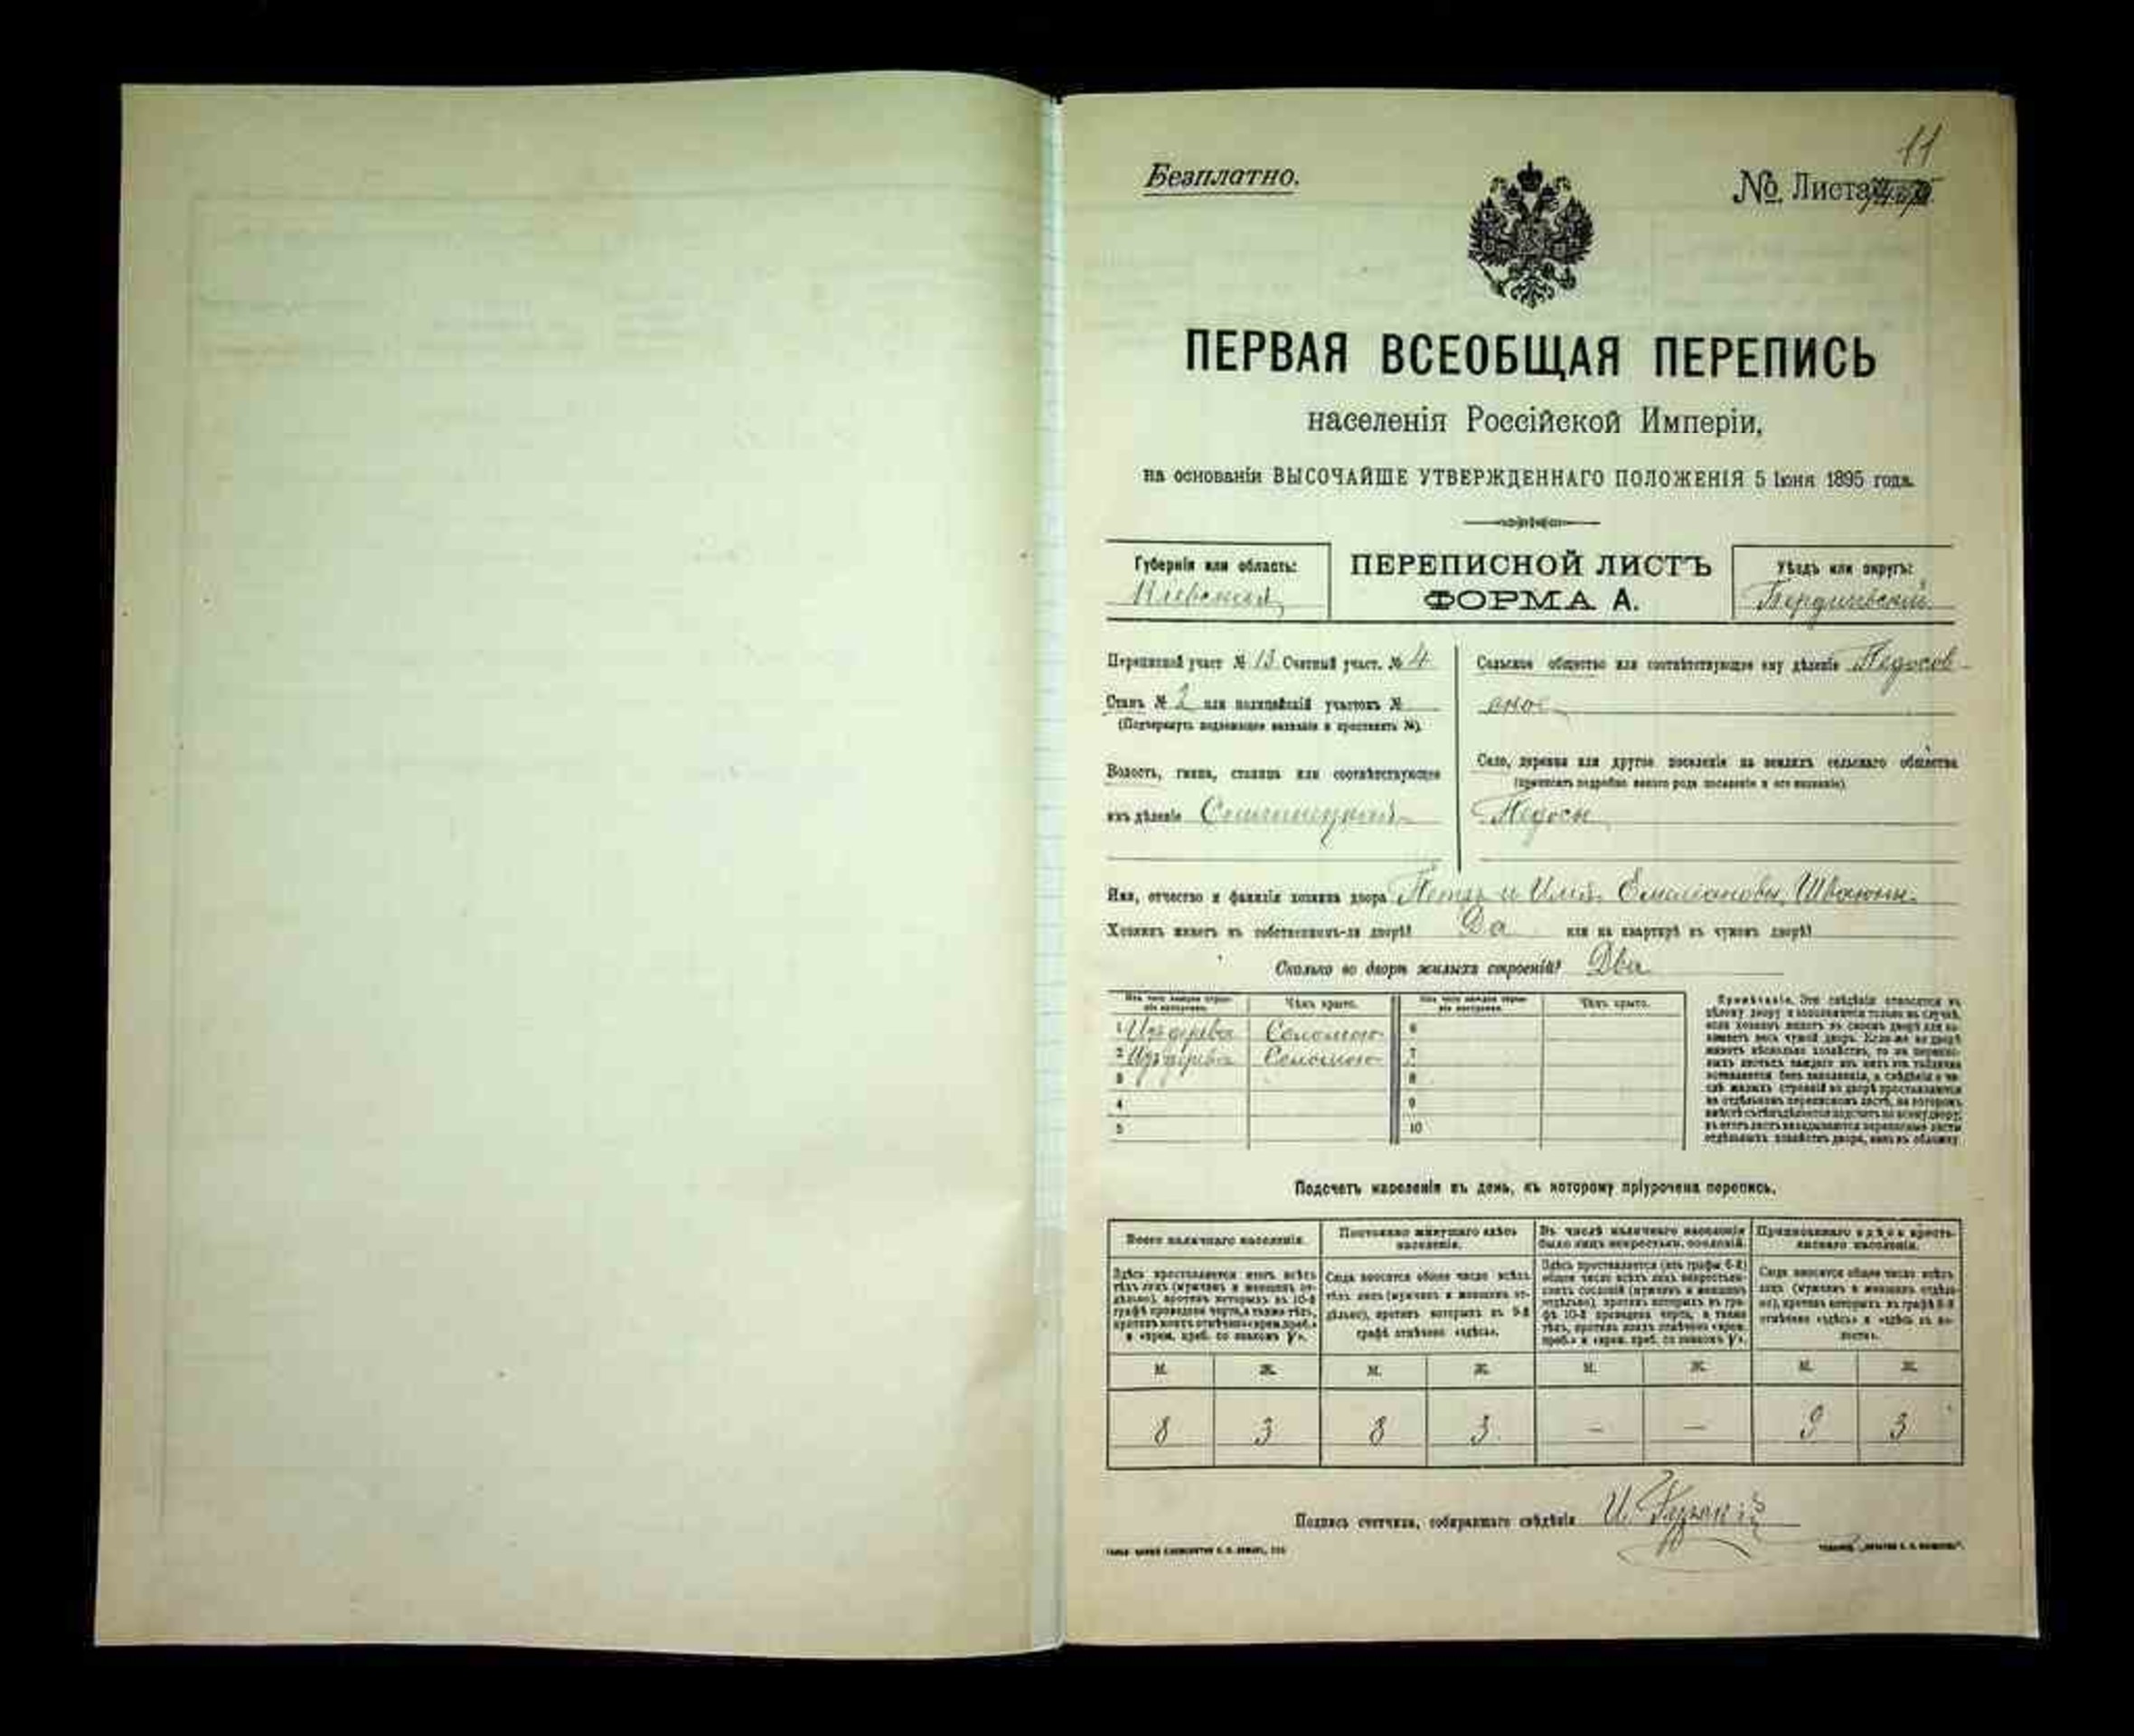 11
Безплатно.
№ Листа
ПЕРВАЯ ВСЕОБЩАЯ ПЕРЕПИСЬ
населенія Россійской Имперіи,
на основаніи ВЫСОЧАЙШЕ УТВЕРЖДЕННАГО ПОЛОЖЕНІЯ 5 Іюня 1895 года.
Губернія или область:
Кіевская
ПЕРЕПИСНОЙ ЛИСТЪ
ФОРМА А.
Уѣздъ или округъ:
Бердичевскій
Переписной участ. № 13 Счетный участ. № 4
Станъ № 2 или полицейскій участокъ №
(Подчеркнуть подлежащее названіе и проставить №).
Волость, гмина, станица или соотвѣтствующее
имъ дѣленіе
Сельское общество или соотвѣтствующее ему дѣленіе Недосов-
ское
Село, деревня или другое поселеніе на земляхъ сельскаго общества
(прописать подробно какого рода поселеніе и его названіе).
Недосы
Имя, отчество и фамилія хозяина двора Петръ и Илья Емиліановы
Хозяинъ живетъ въ собственномъ-ли дворѣ? Да или на квартирѣ въ чужомъ дворѣ?
Сколько во дворѣ жилыхъ строеній? Два
Изъ чего каждое строеніе построено. Чѣмъ крыто. Изъ чего каждое строеніе построено. Чѣмъ крыто.
1 Изъ дерева Соломою 6
2 Изъ дерева Соломою 7
3 8
4 9
5 10
Примѣчаніе. Эти свѣдѣнія относятся къ
цѣлому двору и заполняются только въ случаѣ,
если хозяинъ живетъ въ своемъ дворѣ или за-
нимаетъ весь чужой дворъ. Если-же во дворѣ
живетъ нѣсколько хозяйствъ, то на перепис-
ныхъ листахъ каждаго изъ нихъ эта табличка
оставляется безъ заполненія, а свѣдѣнія о чи-
слѣ жилыхъ строеній во дворѣ проставляются
на отдѣльномъ переписномъ листѣ, на которомъ
вмѣстѣ съ тѣмъ дѣлается подсчетъ по всему двору;
въ этотъ листъ вкладываются переписные листы
отдѣльныхъ хозяйствъ двора, какъ въ обложку.
Подсчетъ населенія въ день, къ которому пріурочена перепись.
Всего наличнаго населенія.
Здѣсь проставляется итогъ всѣхъ
тѣхъ лицъ (мужчинъ и женщинъ от-
дѣльно), противъ которыхъ въ 10-й
графѣ проведена черта, а также тѣхъ,
противъ коихъ отмѣчено «врем. преб.»
и «врем. преб. со знакомъ V».
Постоянно живущаго здѣсь
населенія.
Сюда вносится общее число всѣхъ
тѣхъ лицъ (мужчинъ и женщинъ от-
дѣльно), противъ которыхъ въ 9-й
графѣ отмѣчено «здѣсь».
Въ числѣ наличнаго населенія
было лицъ некрестьян. сословій.
Здѣсь проставляется (изъ графы 6-й)
общее число всѣхъ лицъ некрестьян-
скихъ сословій (мужчинъ и женщинъ
отдѣльно), противъ которыхъ въ гра-
фѣ 10-й проведена черта, а также
тѣхъ, противъ коихъ отмѣчено «врем.
преб.» и «врем. преб. со знакомъ V».
Приписаннаго здѣсь кресть-
янскаго населенія.
Сюда вносится общее число всѣхъ
лицъ (мужчинъ и женщинъ отдѣль-
но), противъ которыхъ въ графѣ 8-й
отмѣчено «здѣсь» и «здѣсь въ во-
лости».
М. Ж. М. Ж. М. Ж. М. Ж.
8 3 8 3 — — 9 3
Подпись счетчика, собиравшаго свѣдѣнія